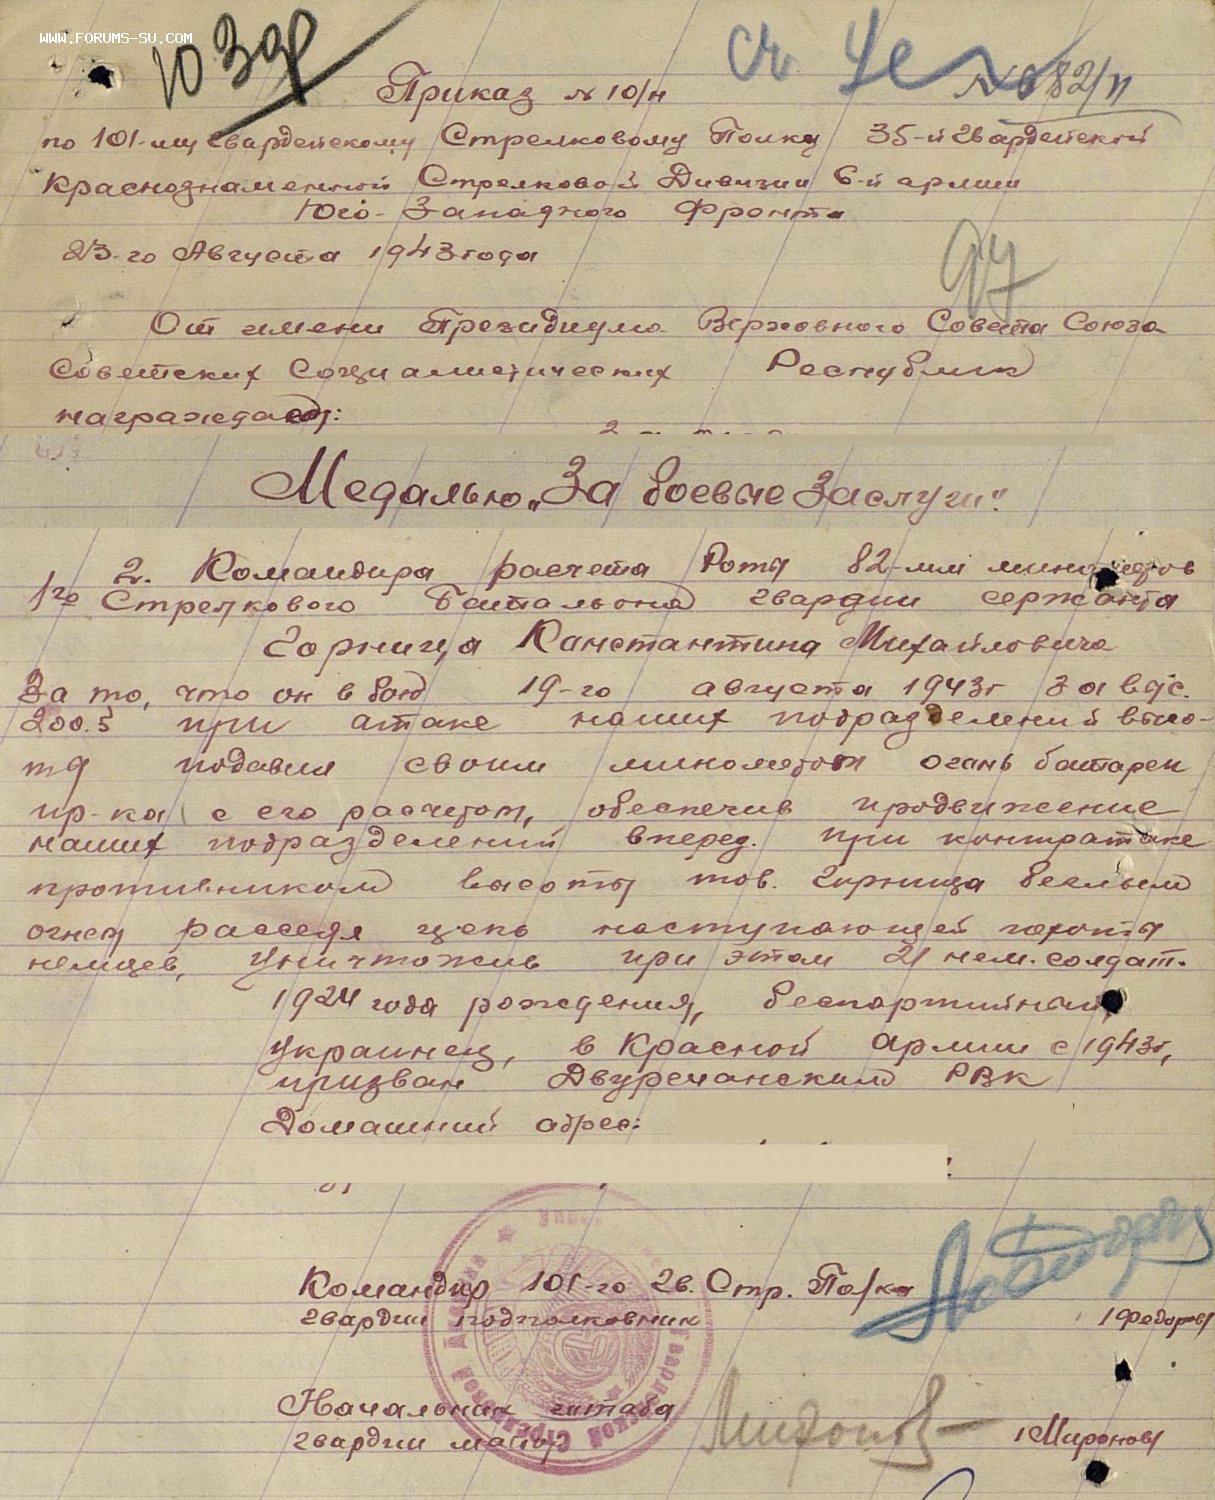 WWW.FORUMS-SU.COM
Приказ № 10/н
по 101-му гвардейскому Стрелковому Полку 35-й гвардейской
Краснознаменной Стрелковой Дивизии 6-й армии
Юго-Западного Фронта
23-го Августа 1943 года
97
От имени Президиума Верховного Совета Союза
Советских Социалистических Республик
награждаю:
Медалью „За боевые Заслуги".
2. Командира расчета Роты 82-мм минометов
1го Стрелкового Батальона гвардии сержанта
Горница Канстантина Михайловича
За то, что он в бою 19-го августа 1943г за выс.
200.5 при атаке наших подразделений высо-
ту подавил своим минометом огань батареи
пр-ка с его расчетом, обеспечив продвижение
наших подразделений вперед. при контратаке
противником высоты тов. Горница беглым
огнем рассеял цепь наступающей пехоты
немцев, уничтожив при этом 21 нем. солдат.
1924 года рождения, беспартийный,
украинец, в Красной армии с 1943г,
призван Двуречанским РВК
Домашний адрес:
Командир 101-го Гв. Стр. Полка
гвардии подполковник /Федоров/
Начальник штаба
гвардии майор /Миронов/
Гвардейской Стрелковой Дивизии